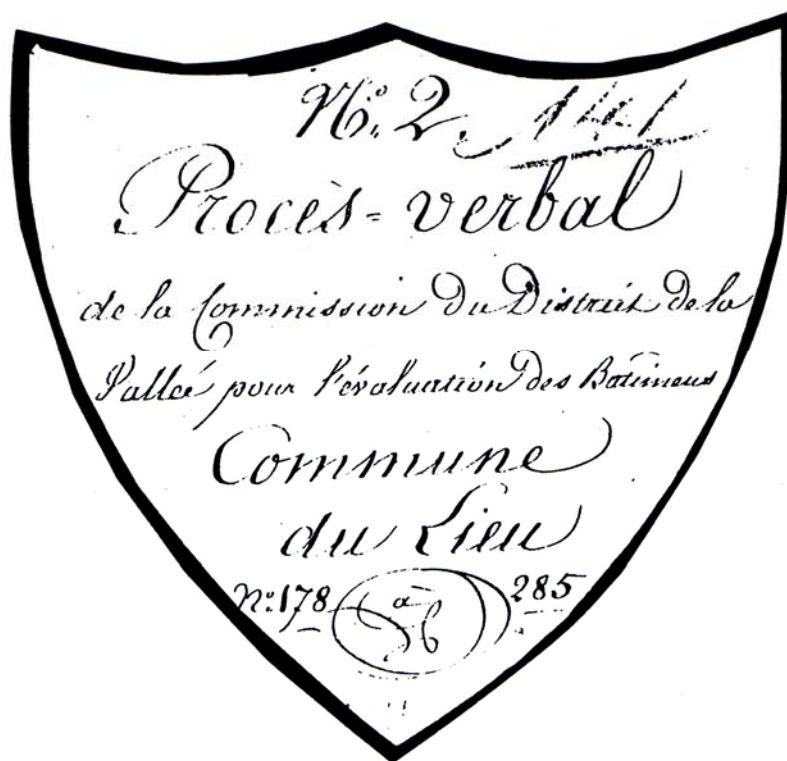 N.º 2. 141
Procès=verbal
de la Commission du District de la
Vallée pour l'évaluation des Bâtimens
Commune
du Lieu
N.º 178 à 285